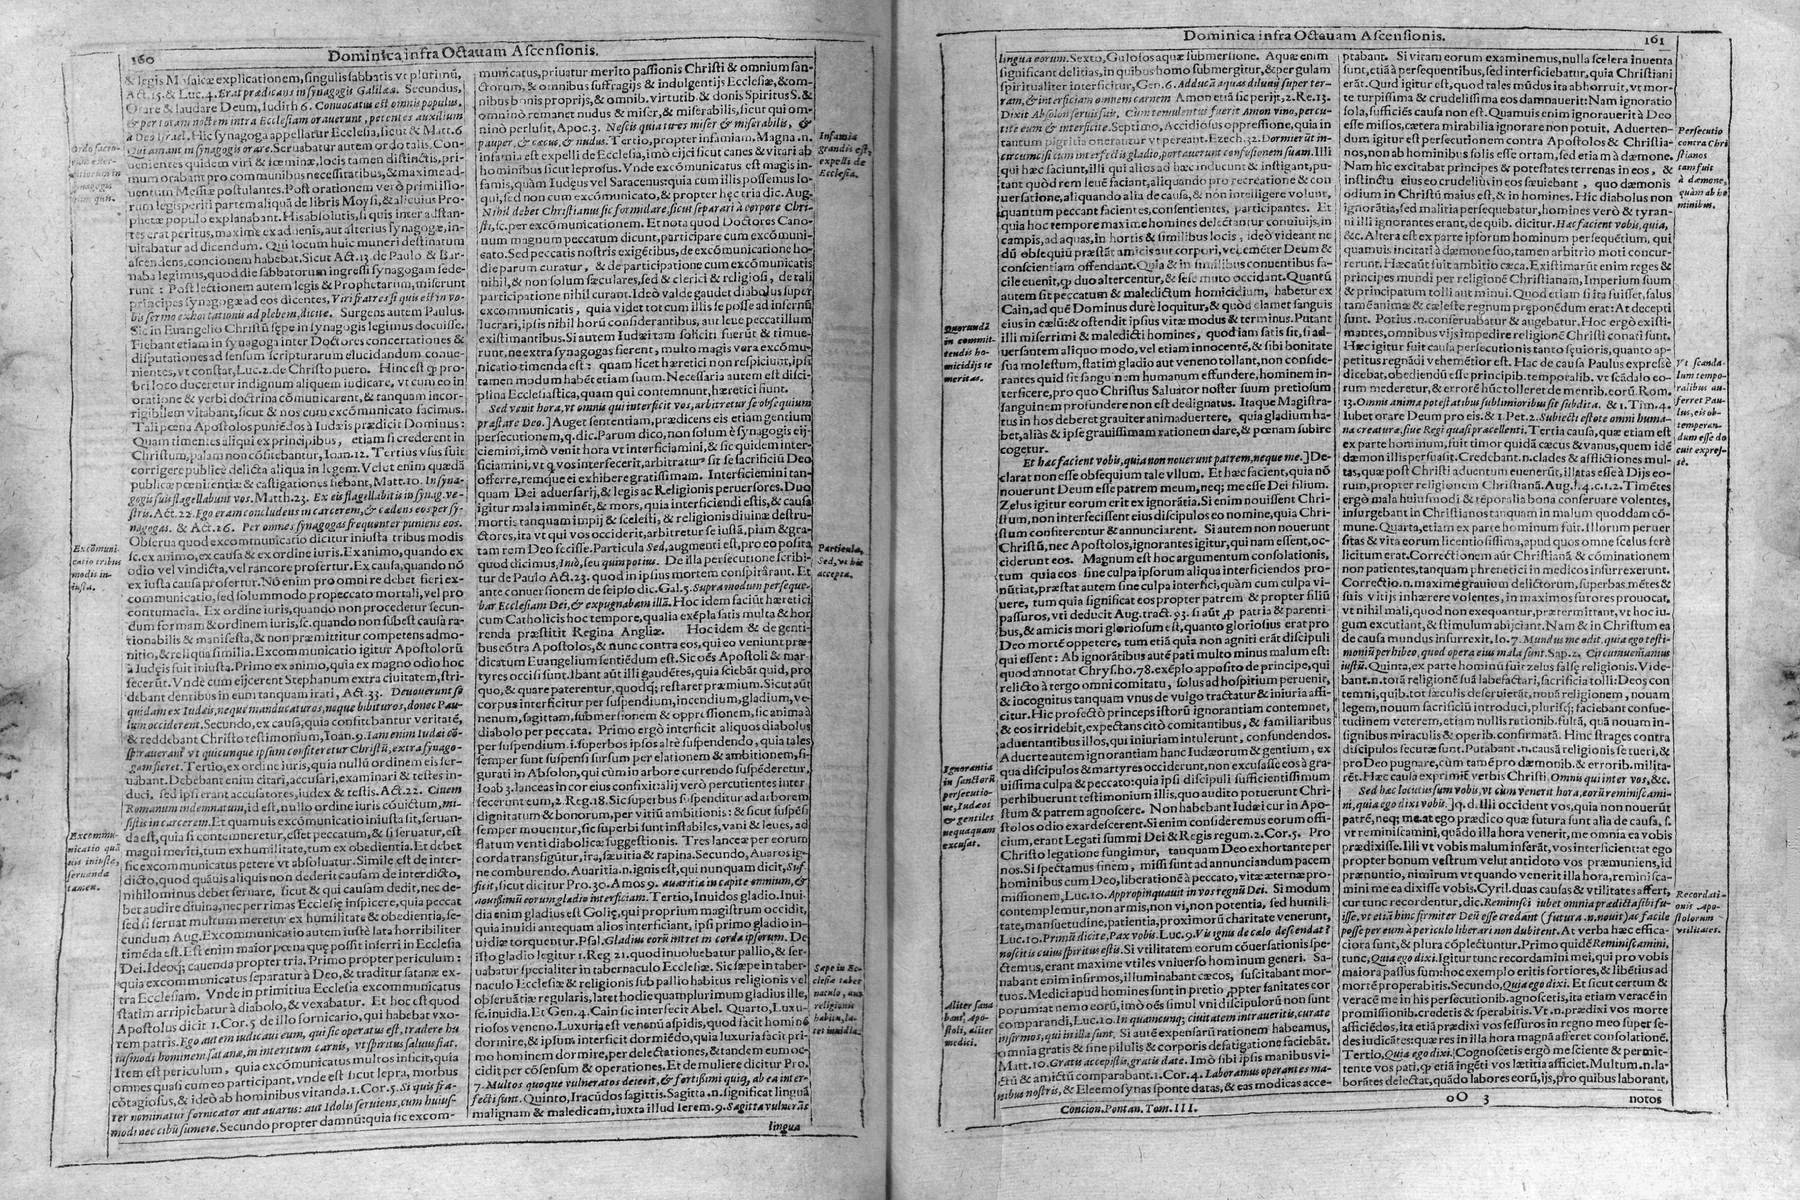 160
Dominica infra Octauam Ascensionis.
& legis Mosaicæ explicationem, singulis sabbatis vt plurimũ,
Act. 15. & Luc. 4. Erat prædicans in synagogis Galilææ. Secundus,
Orare & laudare Deum, Iudith 6. Conuocatus est omnis populus,
& per totam noctem intra Ecclesiam orauerunt, petentes auxilium
à Deo Israel. Hic synagoga appellatur Ecclesia, sicut & Matt. 6
Qui amant in synagogis orare. Seruabatur autem ordo talis. Con-
uenientes quidem viri & fœminæ, locis tamen distinctis, pri-
mum orabant pro communibus necessitatibus, & maxime ad-
uentum Messiæ postulantes. Post orationem verò primi illo-
rum legisperiti partem aliquã de libris Moysi, & alicuius Pro-
phetæ populo explanabant. His absolutis, si quis inter adstan-
tes erat peritus, maxime ex aduenis, aut alterius synagogæ, in-
uitabatur ad dicendum. Qui locum huic muneri destinatum
ascendens, concionem habebat. Sicut Act. 13. de Paulo & Bar-
naba legimus, quod die sabbatorum ingressi synagogam sede-
runt: Post lectionem autem legis & Prophetarum, miserunt
principes synagogæ ad eos dicentes, Viri fratres si quis est in vo-
bis sermo exhortationis ad plebem, dicite. Surgens autem Paulus.
Sic in Euangelio Christũ sępe in synagogis legimus docuisse.
Fiebant etiam in synagoga inter Doctores concertationes &
disputationes ad sensum scripturarum elucidandum conue-
nientes, vt constat, Luc. 2. de Christo puero. Hinc est ꝙ pro-
bri loco duceretur indignum aliquem iudicare, vt cum eo in
oratione & verbi doctrina cõmunicarent, & tanquam incor-
rigibilem vitabant, sicut & nos cum excõmunicato facimus.
Tali pœna Apostolos puniẽdos à Iudæis prædicit Dominus:
Quam timentes aliqui ex principibus, etiam si crederent in
Christum, palam non cõfitebantur, Ioan. 12. Tertius vsus fuit
corrigere publicè delicta aliqua in legem. Velut enim quædã
publicæ pœnitentiæ & castigationes fiebant, Matt. 10. In syna-
gogis suis flagellabunt vos. Matth. 23. Ex eis flagellabitis in synag. ve-
stris. Act. 22. Ego eram concludens in carcerem, & cædens eos per sy-
nagogas. & Act. 26. Per omnes synagogas frequenter puniens eos.
Obserua quod excommunicatio dicitur iniusta tribus modis
sc. ex animo, ex causa & ex ordine iuris. Ex animo, quando ex
odio vel vindicta, vel rancore profertur. Ex causa, quando nõ
ex iusta causa profertur. Nõ enim pro omni re debet fieri ex-
communicatio, sed solummodo pro peccato mortali, vel pro
contumacia. Ex ordine iuris, quando non proceditur secun-
dum formam & ordinem iuris, sc. quando non subest causa ra-
tionabilis & manifesta, & non præmittitur competens admo-
nitio, & reliqua similia. Excommunicatio igitur Apostolorũ
à Iudęis fuit iniusta. Primo ex animo, quia ex magno odio hoc
fecerũt. Vnde cum eijcerent Stephanum extra ciuitatem, stri-
debant dentibus in eum tanquam irati, Act. 33. Deuouerunt se
quidam ex Iudæis, neque manducaturos, neque bibituros, donec Pau-
lum occiderent. Secundo, ex causa, quia confitebantur veritatẽ,
& reddebant Christo testimonium, Ioan. 9. Iam enim Iudæi cõ-
spirauerant vt quicunque ipsum confiteretur Christũ, extra synago-
gam fieret. Tertio, ex ordine iuris, quia nullũ ordinem eis ser-
uabant. Debebant enim citari, accusari, examinari & testes in-
duci, sed ipsi erant accusatores, iudex & testis. Act. 22. Ciuem
Romanum indemnatum, id est, nullo ordine iuris cõuictum, mi-
sistis in carcerem. Et quamuis excõmunicatio iniusta sit, seruan-
da est, quia si contemneretur, esset peccatum, & si seruatur, est
magni meriti, tum ex humilitate, tum ex obedientia. Et debet
sic excommunicatus petere vt absoluatur. Simile est de inter-
dicto, quod quãuis aliquis non dederit causam de interdicto,
nihilominus debet seruare, sicut & qui causam dedit, nec de-
bet audire diuina, nec per rimas Ecclesię inspicere, quia peccat
sed si seruat multum meretur ex humilitate & obedientia, se-
cundum Aug. Excommunicatio autem iustè lata horribiliter
timẽda est. Est enim maior pœna quę possit inferri in Ecclesia
Dei. Ideoq; cauenda propter tria. Primo propter periculum:
quia excommunicatus separatur à Deo, & traditur satanæ ex-
tra Ecclesiam. Vnde in primitiua Ecclesia excommunicatus
statim arripiebatur à diabolo, & vexabatur. Et hoc est quod
Apostolus dicit 1. Cor. 5 de illo fornicario, qui habebat vxo-
rem patris. Ego autem iudicaui eum, qui sic operatus est, tradere hu
iusmodi hominem satanæ, in interitum carnis, vt spiritus saluus fiat.
Item est periculum, quia excõmunicatus multos inficit, quia
omnes quasi cum eo participant, vnde est sicut lepra, morbus
cõtagiosus, & ideò ab hominibus vitanda. 1. Cor. 5. Si quis fra-
ter nominatur fornicator aut auarus: aut Idolis seruiens, cum huius-
modi nec cibũ sumere. Secundo propter damnũ: quia sic excom-
municatus, priuatur merito passionis Christi & omnium san-
ctorum, & omnibus suffragijs & indulgentijs Ecclesiæ, & om-
nibus bonis proprijs, & omnib. virtutib. & donis Spiritus S. &
omnino remanet nudus & miser, & miserabilis, sicut qui om-
ninò perlusit, Apoc. 3. Nescis quia tu es miser & miserabilis, &
pauper, & cæcus, & nudus. Tertio, propter infamiam, Magna. n.
infamia est expelli de Ecclesia, imò eijci sicut canes & vitari ab
hominibus sicut leprosus. Vnde excõmunicatus est magis in-
famis, quàm Iudęus vel Saracenus: quia cum illis possemus lo-
qui, sed non cum excõmunicato, & propter hęc tria dic. Aug.
Nihil debet Christianus sic formidare, sicut separari à corpore Chri-
sti, sc. per excõmunicationem. Et nota quod Doctores Cano-
num magnum peccatum dicunt, participare cum excõmuni-
cato. Sed peccatis nostris exigẽtibus, de excõmunicatione ho-
die parum curatur, & de participatione cum excõmunicatis
nihil, & non solum sæculares, sed & clerici & religiosi, de tali
participatione nihil curant. Ideò valde gaudet diabolus super
excommunicatis, quia videt tot cum illis se posse ad infernũ
lucrari, ipsis nihil horũ considerantibus, aut leue peccatillum
existimantibus. Si autem Iudæi tam soliciti fuerũt & timue-
runt, ne extra synagogas fierent, multo magis vera excõmu-
nicatio timenda est: quam licet hæretici non respiciunt, ipsi
tamen modum habẽt etiam suum. Necessaria autem est disci-
plina Ecclesiastica, quam qui contemnunt, hæretici fiunt.
Sed venit hora, vt omnis qui interficit vos, arbitretur se obsequium
præstare Deo.] Auget sententiam, prædicens eis etiam gentium
persecutionem, q. dic. Parum dico, non solum è synagogis eij-
ciemini, imò venit hora vt interficiamini, & sic quidem inter-
ficiamini, vt q vos interfecerit, arbitratur⁹ sit se sacrificiũ Deo
offerre, remque ei exhibere gratissimam. Interficiemini tan-
quam Dei aduersarij, & legis ac Religionis peruersores. Duo
igitur mala imminẽt, & mors, quia interficiendi estis, & causa
mortis tanquam impij & scelesti, & religionis diuinæ destru-
ctores, ita vt qui vos occiderit, arbitretur se iustã, piam & gra-
tam rem Deo fecisse. Particula Sed, augenti est, pro eo posita
quod dicimus, Imò, seu quin potius. De illa persecutione scribi-
tur de Paulo Act. 23. quod in ipsius mortem conspirârant. Et
ante conuersionem de seipso dic. Gal. 5. Supra modum perseque-
bar Ecclesiam Dei, & expugnabam illã. Hoc idem faciũt hæretici
cum Catholicis hoc tempore, qualia exẽpla satis multa & hor
renda præstitit Regina Angliæ. Hoc idem & de genti-
bus cõtra Apostolos, & nunc contra eos, qui eo veniunt præ-
dicatum Euangelium sentiẽdum est. Sic oẽs Apostoli & mar-
tyres occisi sunt. Ibant aũt illi gaudẽtes, quia sciebãt quid, pro
quo, & quare paterentur, quodq; restaret præmium. Sicut aũt
corpus interficitur per suspendium, incendium, gladium, ve-
nenum, sagittam, submersionem & oppressionem, sic anima à
diabolo per peccata. Primo ergò interficit aliquos diabolus
per suspendium. i. superbos ipsos altè suspendendo, quia tales
semper sunt suspensi sursum per elationem & ambitionem, fi-
gurati in Absolon, qui cùm in arbore currendo suspẽderetur,
Ioab 3. lanceas in cor eius confixit: alij verò percutientes inter
fecerunt eum, 2. Reg. 18. Sic superbus suspenditur ad arborem
dignitatum & bonorum, per vitiũ ambitionis: & sicut suspẽsi
semper mouentur, sic superbi sunt instabiles, vani & leues, ad
flatum venti diabolicæ suggestionis. Tres lanceæ per eorum
corda transfigũtur, ira, sæuitia & rapina. Secundo, Auaros ig-
ne comburendo. Auaritia. n. ignis est, qui nunquam dicit, Suf-
ficit, sicut dicitur Pro. 30. Amos 9. auaritia in capite omnium, &
nouissimũ eorum gladio interficiam. Tertio, Inuidos gladio. Inui-
dia enim gladius est Golię, qui proprium magistrum occidit,
quia inuidi antequam alios interficiant, ipsi primo gladio in-
uidiæ torquentur. Psal. Gladius eorũ intret in corda ipsorum. De
isto gladio legitur 1. Reg 21. quod inuoluebatur pallio, & ser-
uabatur specialiter in tabernaculo Ecclesiæ. Sic sæpe in taber-
naculo Ecclesiæ & religionis sub pallio habitus religionis vel
obseruãtiæ regularis, latet hodie quamplurimum gladius ille,
sc. inuidia. Et Gen. 4. Cain sic interfecit Abel. Quarto, Luxu-
riosos veneno. Luxuria est venenũ aspidis, quod facit hominẽ
dormire, & ipsum interficit dormiẽdo, quia luxuria facit pri-
mo hominem dormire, per delectationes, & tandem eum oc-
cidit per cõsensum & operationes. Et de muliere dicitur Pro.
7. Multos quoque vulneratos deiecit, & fortissimi quiq; ab ea inter-
fecti sunt. Quinto, Iracũdos sagittis. Sagitta. n. significat linguã
malignam & maledicam, iuxta illud Ierem. 9. Sagitta vulnerãs
lingua
Excõmuni-
catio tribus
modis in-
iusta.
Excommu-
nicatio quã
uis iniusta,
seruanda
tamen.
Infamia
grandis est,
expelli de
Ecclesia.
Particula,
Sed, vt hic
accepta.
Sæpe in Ec-
clesiæ taber
naculo, aut
religionis
habitu, la-
tet inuidia.
Dominica infra Octauam Ascensionis.
161
lingua eorum. Sexto, Gulosos aquæ submersione. Aquæ enim
significant delitias, in quibus homo submergitur, & per gulam
spiritualiter interficitur, Gen. 6. Adducã aquas diluuij super ter-
ram, & interficiam omnem carnem Amon etiã sic perijt, 2. Re. 13.
Dixit Absolon seruis suis, Cum temulentus fuerit Amon vino, percu-
tite eum & interficite. Septimo, Accidiosos oppressione, quia in
tantum pigritia onerãtur vt pereant. Ezech. 32. Dormierũt in-
circumcisi cum interfectis gladio, portauerunt confusionem suam. Illi
qui hæc faciunt, illi qui alios ad hæc inducunt & instigant, pu-
tant quòd rem leuẽ faciant, aliquando pro recreatione & con
uersatione, aliquando alia de causa, & non intelligere volunt,
quantum peccant facientes, consentientes, participantes. Et
quia hoc tempore maxime homines delectantur conuiuijs, in
campis, ad aquas, in hortis & similibus locis, ideò videant ne
dũ obsequiũ præstãt amicis aut corpori, vel emẽter Deum &
conscientiam offendant. Quia & in similibus conuentibus fa-
cile euenit, ꝙ duo altercentur, & sese mutuo occidant. Quantũ
autem sit peccatum & maledictum homicidium, habetur ex
Cain, ad quẽ Dominus durè loquitur, & quòd clamet sanguis
eius in cælũ: & ostendit ipsius vitæ modus & terminus. Putant
illi miserrimi & maledicti homines, quod iam satis sit, si ad-
uersantem aliquo modo, vel etiam innocentẽ, & sibi bonitate
sua molestum, statim gladio aut veneno tollant, non conside-
rantes quid sit sanguinem humanum effundere, hominem in-
terficere, pro quo Christus Saluator noster suum pretiosum
sanguinem profundere non est dedignatus. Itaque Magistra-
tus in hos deberet grauiter animaduertere, quia gladium ha-
bet, aliàs & ipse grauissimam rationem dare, & pœnam subire
cogetur.
Et hæc facient vobis, quia non nouerunt patrem, neque me.] De-
clarat non esse obsequium tale vllum. Et hæc facient, quia nõ
nouerunt Deum esse patrem meum, neq; me esse Dei filium.
Zelus igitur eorum erit ex ignorãtia. Si enim nouissent Chri-
stum, non interfecissent eius discipulos eo nomine, quia Chri-
stum confiterentur & annunciarent. Si autem non nouerunt
Christũ, nec Apostolos, ignorantes igitur, qui nam essent, oc-
ciderunt eos. Magnum est hoc argumentum consolationis,
tum quia eos sine culpa ipsorum aliqua interficiendos pro-
nũtiat, præstat autem sine culpa interfici, quàm cum culpa vi-
uere, tum quia significat eos propter patrem & propter filiũ
passuros, vti deducit Aug. tract. 93. si aũt ꝓ patria & parenti-
bus, & amicis mori gloriosum est, quanto gloriosius erat pro
Deo mortẽ oppetere, tum etiã quia non agniti erãt discipuli
qui essent: Ab ignorãtibus autẽ pati multo minus malum est:
quod annotat Chrys. ho. 78. exẽplo apposito de principe, qui
relicto à tergo omni comitatu, solus ad hospitium peruenit,
& incognitus tanquam vnus de vulgo tractatur & iniuria affi-
citur. Hic profectò princeps istorũ ignorantiam contemnet,
& eos irridebit, expectans citò comitantibus, & familiaribus
aduentantibus illos, qui iniuriam intulerunt, confundendos.
Aduerte autem ignorantiam hanc Iudæorum & gentium, ex
qua discipulos & martyres occiderunt, non excusasse eos à gra-
uissima culpa & peccato: quia ipsi discipuli sufficientissimum
perhibuerunt testimonium illis, quo audito potuerunt Chri-
stum & patrem agnoscere. Non habebant Iudæi cur in Apo-
stolos odio exardescerent. Si enim consideremus eorum offi-
cium, erant Legati summi Dei & Regis regum. 2. Cor. 5. Pro
Christo legatione fungimur, tanquam Deo exhortante per
nos. Si spectamus finem, missi sunt ad annunciandum pacem
hominibus cum Deo, liberationẽ à peccato, vitæ æternæ pro-
missionem, Luc. 10. Appropinquauit in vos regnũ Dei. Si modum
contemplemur, non armis, non vi, non potentia, sed humili-
tate, mansuetudine, patientia, proximorũ charitate venerunt,
Luc. 10. Primũ dicite, Pax vobis. Luc. 9. Vis ignis de cælo descendat?
nescitis cuius spiritus estis. Si vtilitatem eorum cõuersationis spe-
ctemus, erant maxime vtiles vniuerso hominum generi. Sa-
nabant enim infirmos, illuminabant cæcos, suscitabant mor-
tuos. Medici apud homines sunt in pretio ꝓpter sanitates cor
porum: at nemo eorũ, imò oẽs simul vni discipulorũ non sunt
comparandi, Luc. 10. In quamcunq; ciuitatem intraueritis, curate
infirmos, qui in illa sunt. Si autẽ expensarũ rationem habeamus,
omnia gratis & sine pilulis & corporis defatigatione faciebãt.
Matt. 10. Gratis accepistis, gratis date. Imò sibi ipsis manibus vi-
ctũ & amictũ comparabant. 1. Cor. 4. Laboramus operantes ma-
nibus nostris, & Eleemosynas sponte datas, & eas modicas acce-
ptabant. Si vitam eorum examinemus, nulla scelera inuenta
sunt, etiã à persequentibus, sed interficiebatur, quia Christiani
erãt. Quid igitur est, quod tales mũdus ita abhorruit, vt mor-
te turpissima & crudelissima eos damnauerit: Nam ignoratio
sola, sufficiẽs causa non est. Quamuis enim ignorauerit à Deo
esse missos, cætera mirabilia ignorare non potuit. Aduerten-
dum igitur est persecutionem contra Apostolos & Christia-
nos, non ab hominibus solis esse ortam, sed etiam à dæmone.
Nam hic excitabat principes & potestates terrenas in eos, &
instinctu eius eo crudeliùs in eos sæuiebant, quo dæmonis
odium in Christũ maius est, & in homines. Hic diabolus non
ignorãtia, sed malitia persequebatur, homines verò & tyran-
ni ignorantes erant, de quib. dicitur. Hæc facient vobis, quia,
&c. Altera est ex parte ipsorum hominum persequẽtium, qui
quamuis incitati à dæmone suo, tamen arbitrio moti concur-
rerunt. Hæc aũt fuit ambitio cæca. Existimarũt enim reges &
principes mundi per religionẽ Christianam, Imperium suum
& principatum tolli aut minui. Quod etiam si ita fuisset, salus
tamẽ animæ & cæleste regnum pręponẽdum erat: At decepti
sunt. Potius. n. conseruabatur & augebatur. Hoc ergò existi-
mantes, omnibus vijs impedire religionẽ Christi conati sunt.
Hæc igitur fuit causa persecutionis tanto sęuioris, quanto ap-
petitus regnãdi vehemẽtior est. Hac de causa Paulus expressè
dicebat, obediendũ esse principib. temporalib. vt scãdalo eo-
rum mederetur, & errorẽ hũc tolleret de mentib. eorũ Rom.
13. Omnis anima potestatibus sublimioribus sit subdita. & 1. Tim. 4.
Iubet orare Deum pro eis. & 1. Pet. 2. Subiecti estote omni huma-
næ creaturæ, siue Regi quasi præcellenti. Tertia causa, quæ etiam est
ex parte hominum, fuit timor quidã cæcus & vanus, quem idẽ
dæmon illis persuasit. Credebant. n. clades & afflictiones mul-
tas, quæ post Christi aduentum euenerũt, illatas esse à Dijs eo-
rum, propter religionem Christianã. Aug. l. 4. c. 1. 2. Timẽtes
ergò mala huiusmodi & tẽporalia bona conseruare volentes,
insurgebant in Christianos tanquam in malum quoddam cõ-
mune. Quarta, etiam ex parte hominum fuit. Illorum peruer
sitas & vita eorum licentiosissima, apud quos omne scelus ferè
licitum erat. Correctionem aũt Christianã & cõminationem
non patientes, tanquam phrenetici in medicos insurrexerunt.
Correctio. n. maxime grauium delictorum, superbas mẽtes &
suis vitijs inhærere volentes, in maximos furores prouocat,
vt nihil mali, quod non exequantur, prætermittant, vt hoc iu-
gum excutiant, & stimulum abijciant. Nam & in Christum ea
de causa mundus insurrexit, Io. 7. Mundus me odit, quia ego testi-
moniũ perhibeo, quod opera eius mala sunt. Sap. 2. Circumueniamus
iustũ. Quinta, ex parte hominũ fuit zelus falsę religionis. Vide-
bant. n. totã religionẽ suã labefactari, sacrificia tolli: Deos con
temni, quib. tot sæculis deseruierãt, nouã religionem, nouam
legem, nouum sacrificiũ introduci, plurisq; faciebant consue-
tudinem veterem, etiam nullis rationib. fultã, quã nouam in-
signibus miraculis & operib. confirmatã. Hinc strages contra
discipulos secutæ sunt. Putabant. n. causã religionis se tueri, &
pro Deo pugnare, cum tamẽ pro dæmonib. & errorib. milita-
rẽt. Hæc causa exprimit verbis Christi. Omnis qui inter vos, &c.
Sed hæc locutus sum vobis, vt cùm venerit hora, eorũ reminiscami-
ni, quia ego dixi vobis.] q. d. Illi occident vos, quia non nouerũt
patrẽ, neq; me. at ego prædico quæ futura sunt alia de causa, s.
vt reminiscamini, quãdo illa hora venerit, me omnia ea vobis
prædixisse. Illi vt vobis malum inferãt, vos interficient: at ego
propter bonum vestrum velut antidoto vos præmuniens, id
prænuntio, nimirum vt quando venerit illa hora, reminisca-
mini me ea dixisse vobis. Cyril. duas causas & vtilitates affert,
cur tunc recordentur, dic. Reminisci iubet omnia prædicta sibi fu-
isse, vt etiã hinc firmiter Deũ esse credant (futura. n. nouit) ac facile
posse per eum à periculo liberari non dubitent. At verba hæc effica-
ciora sunt, & plura cõplectuntur. Primo quidẽ Reminiscamini,
tunc, Quia ego dixi. Igitur tunc recordamini mei, qui pro vobis
maiora passus sum: hoc exemplo eritis fortiores, & libẽtius ad
mortẽ properabitis. Secundo, Quia ego dixi. Et sicut certum &
veracẽ me in his persecutionib. agnoscetis, ita etiam veracẽ in
promissionib. credetis & sperabitis. Vt. n. prædixi vos morte
afficiẽdos, ita etiã prædixi vos sessuros in regno meo super se-
des iudicãtes: quæ res in illa hora magnã afferet consolationẽ.
Tertio, Quia ego dixi. Cognoscetis ergò me sciente & permit-
tente vos pati, ꝙ etiã ingẽti vos lætitia afficiet. Multum. n. la-
borãtes delectat, quãdo labores eorũ, ijs, pro quibus laborant,
Concion. Pontan. Tom. III.
oO 3
notos
Quorundã
in commit-
tendis ho-
micidijs te
meritas.
Ignorantia
in sanctorũ
persecutio-
ne, Iudæos
& gentiles
nequaquam
excusat.
Aliter sana
bant, Apo-
stoli, aliter
medici.
Persecutio
contra Chri
stianos
tam fuit
à dæmone,
quàm ab ho
minibus.
Vt scanda-
lum tempo-
ralibus au-
ferret Pau-
lus, eis ob-
temperan-
dum esse do
cuit expres-
sè.
Recordati-
onis Apo-
stolorum
vtilitates.